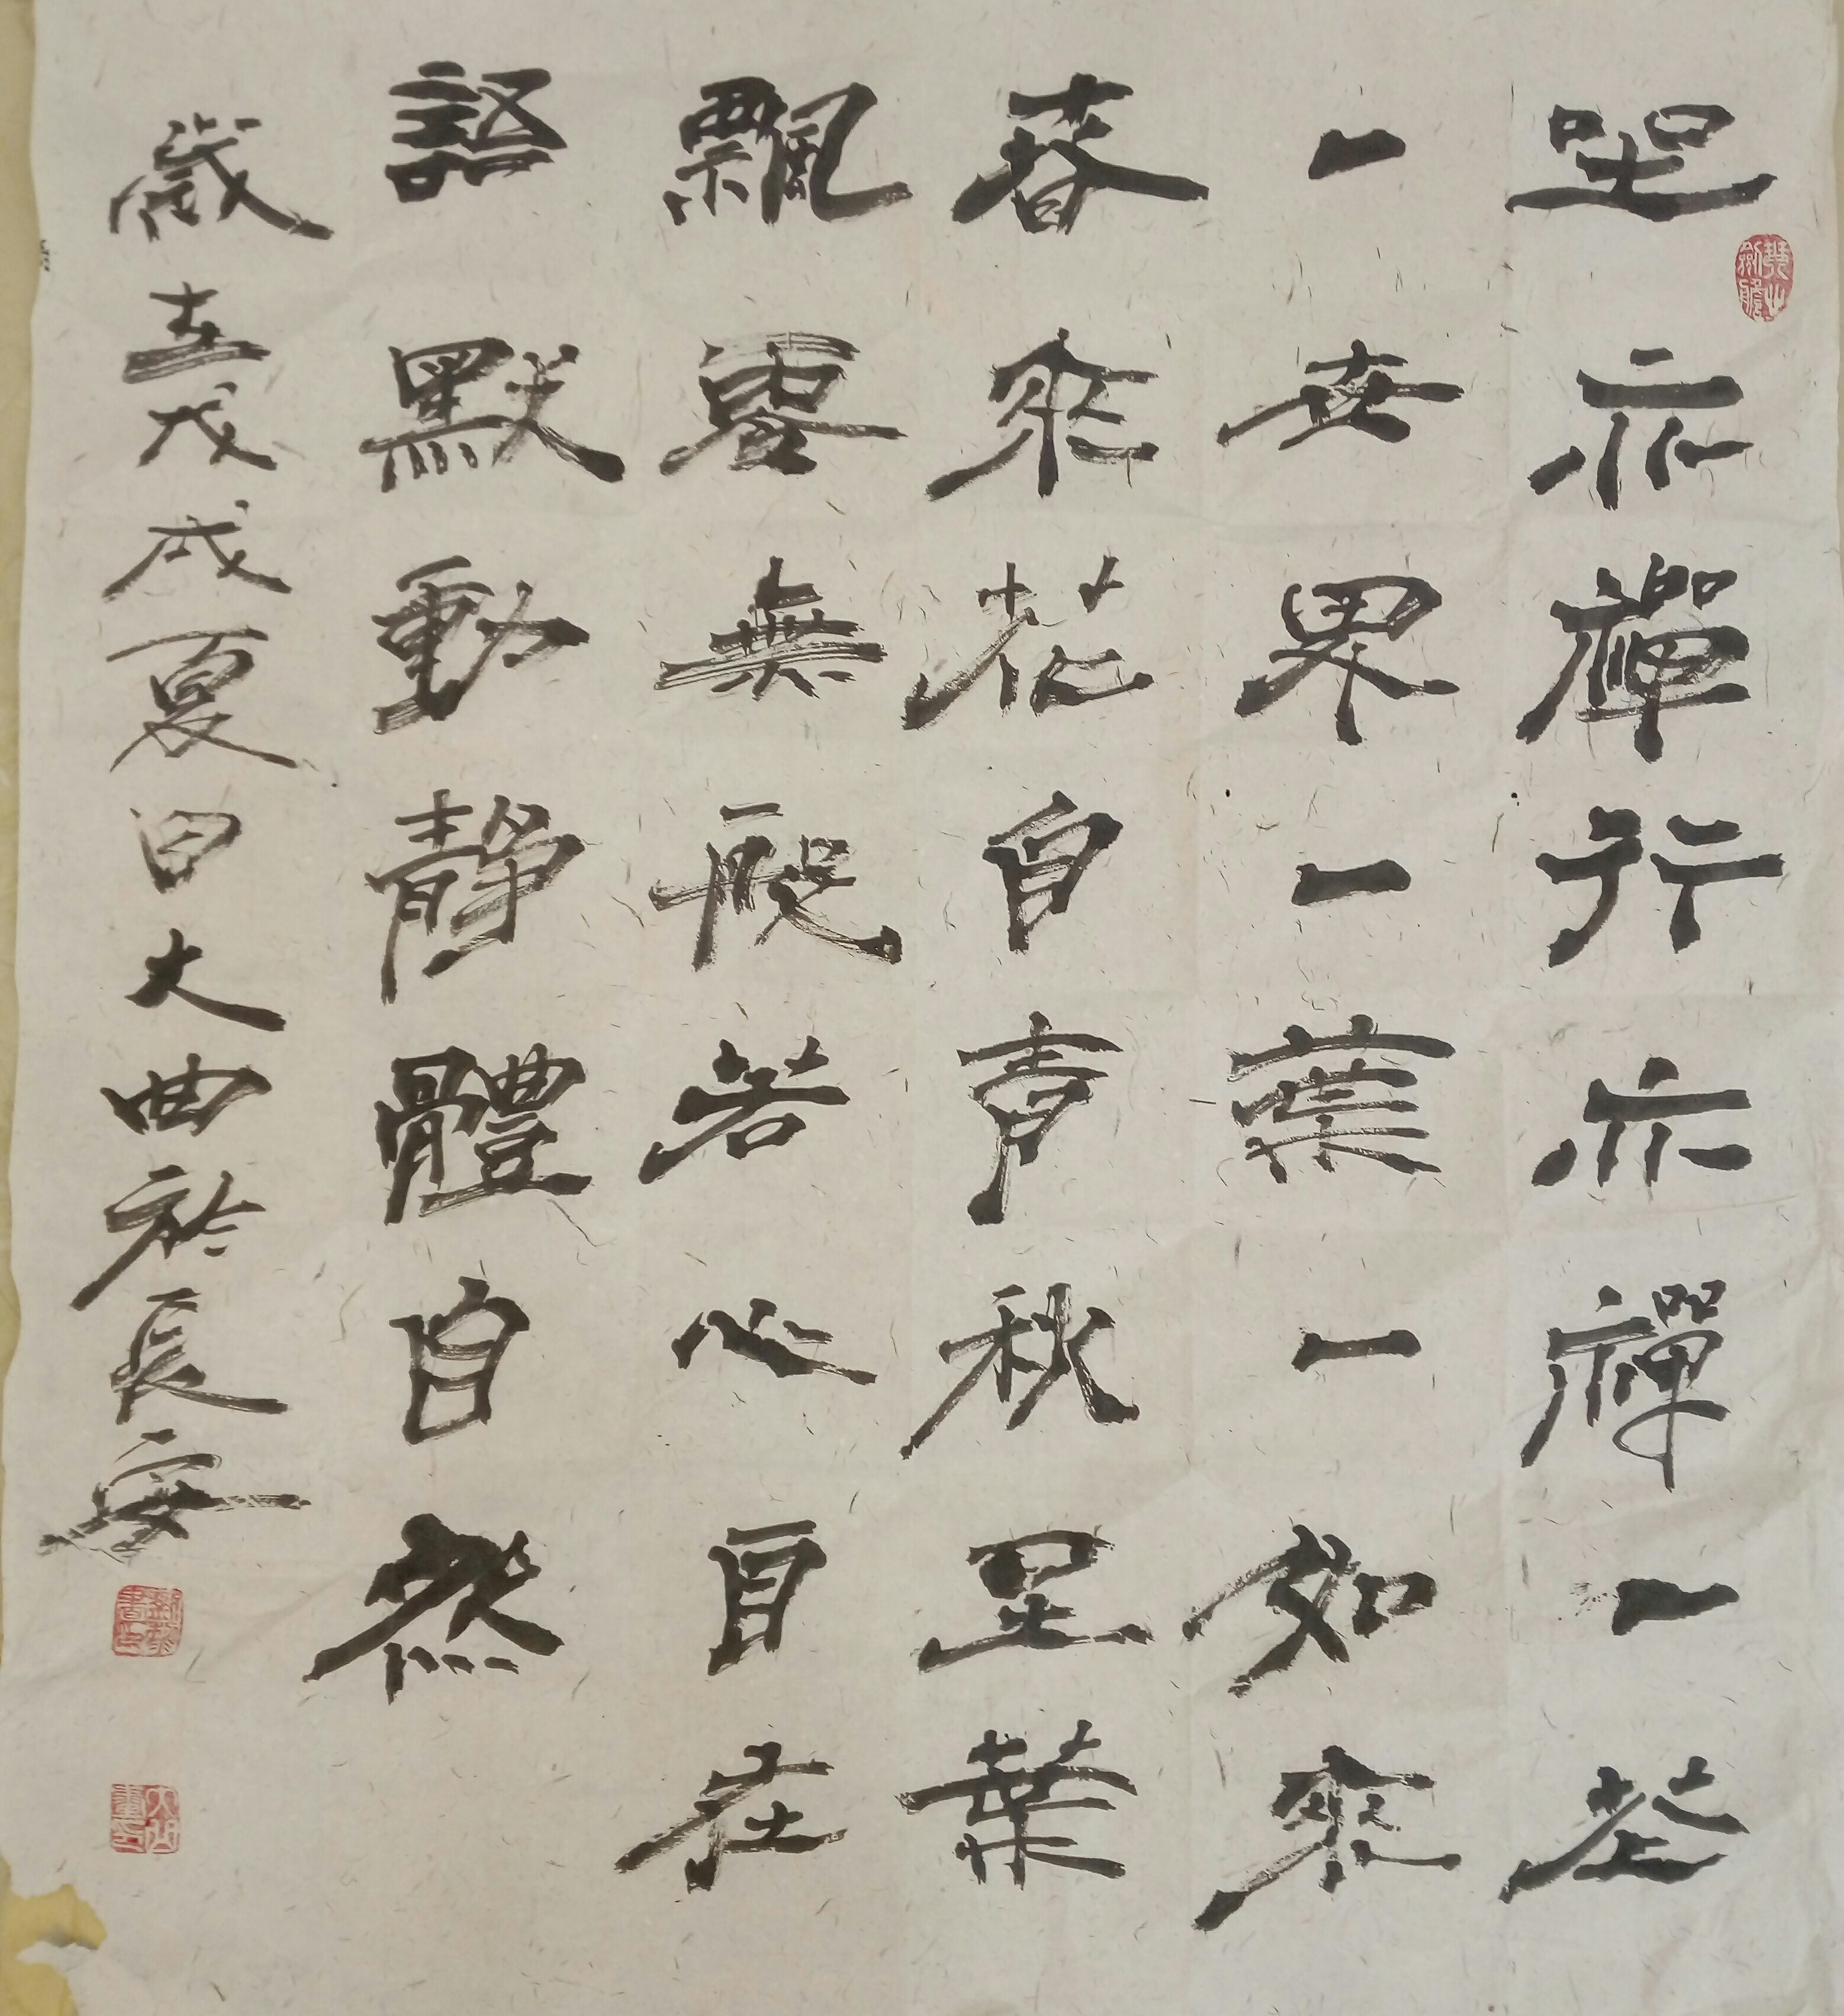 坐亦禪行亦禪一花
一世界一葉一如來
春來花自青秋至葉
飄零無般若心自在
語默動靜體自然
歲在戊戌夏日大曲於長安